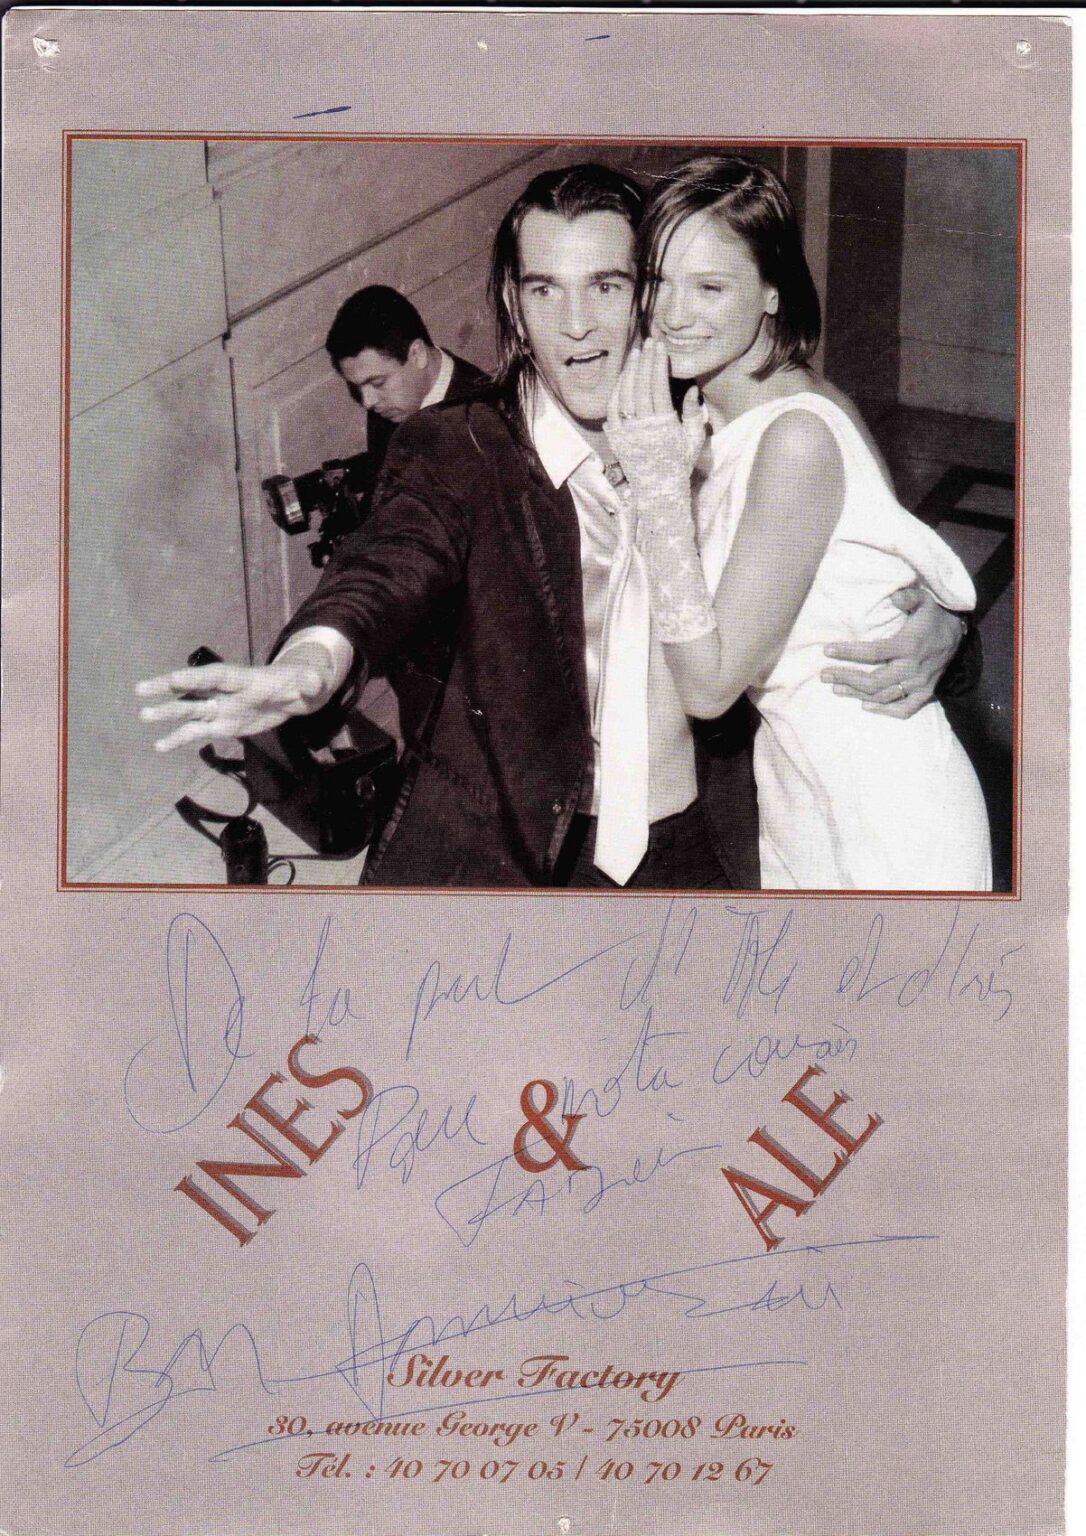 De la part d'Ale et d'Inès
Pour cousin
INES & ALE
Bon Anniversaire
Silver Factory
30, avenue George V - 75008 Paris
Tél. : 40 70 07 05 / 40 70 12 67